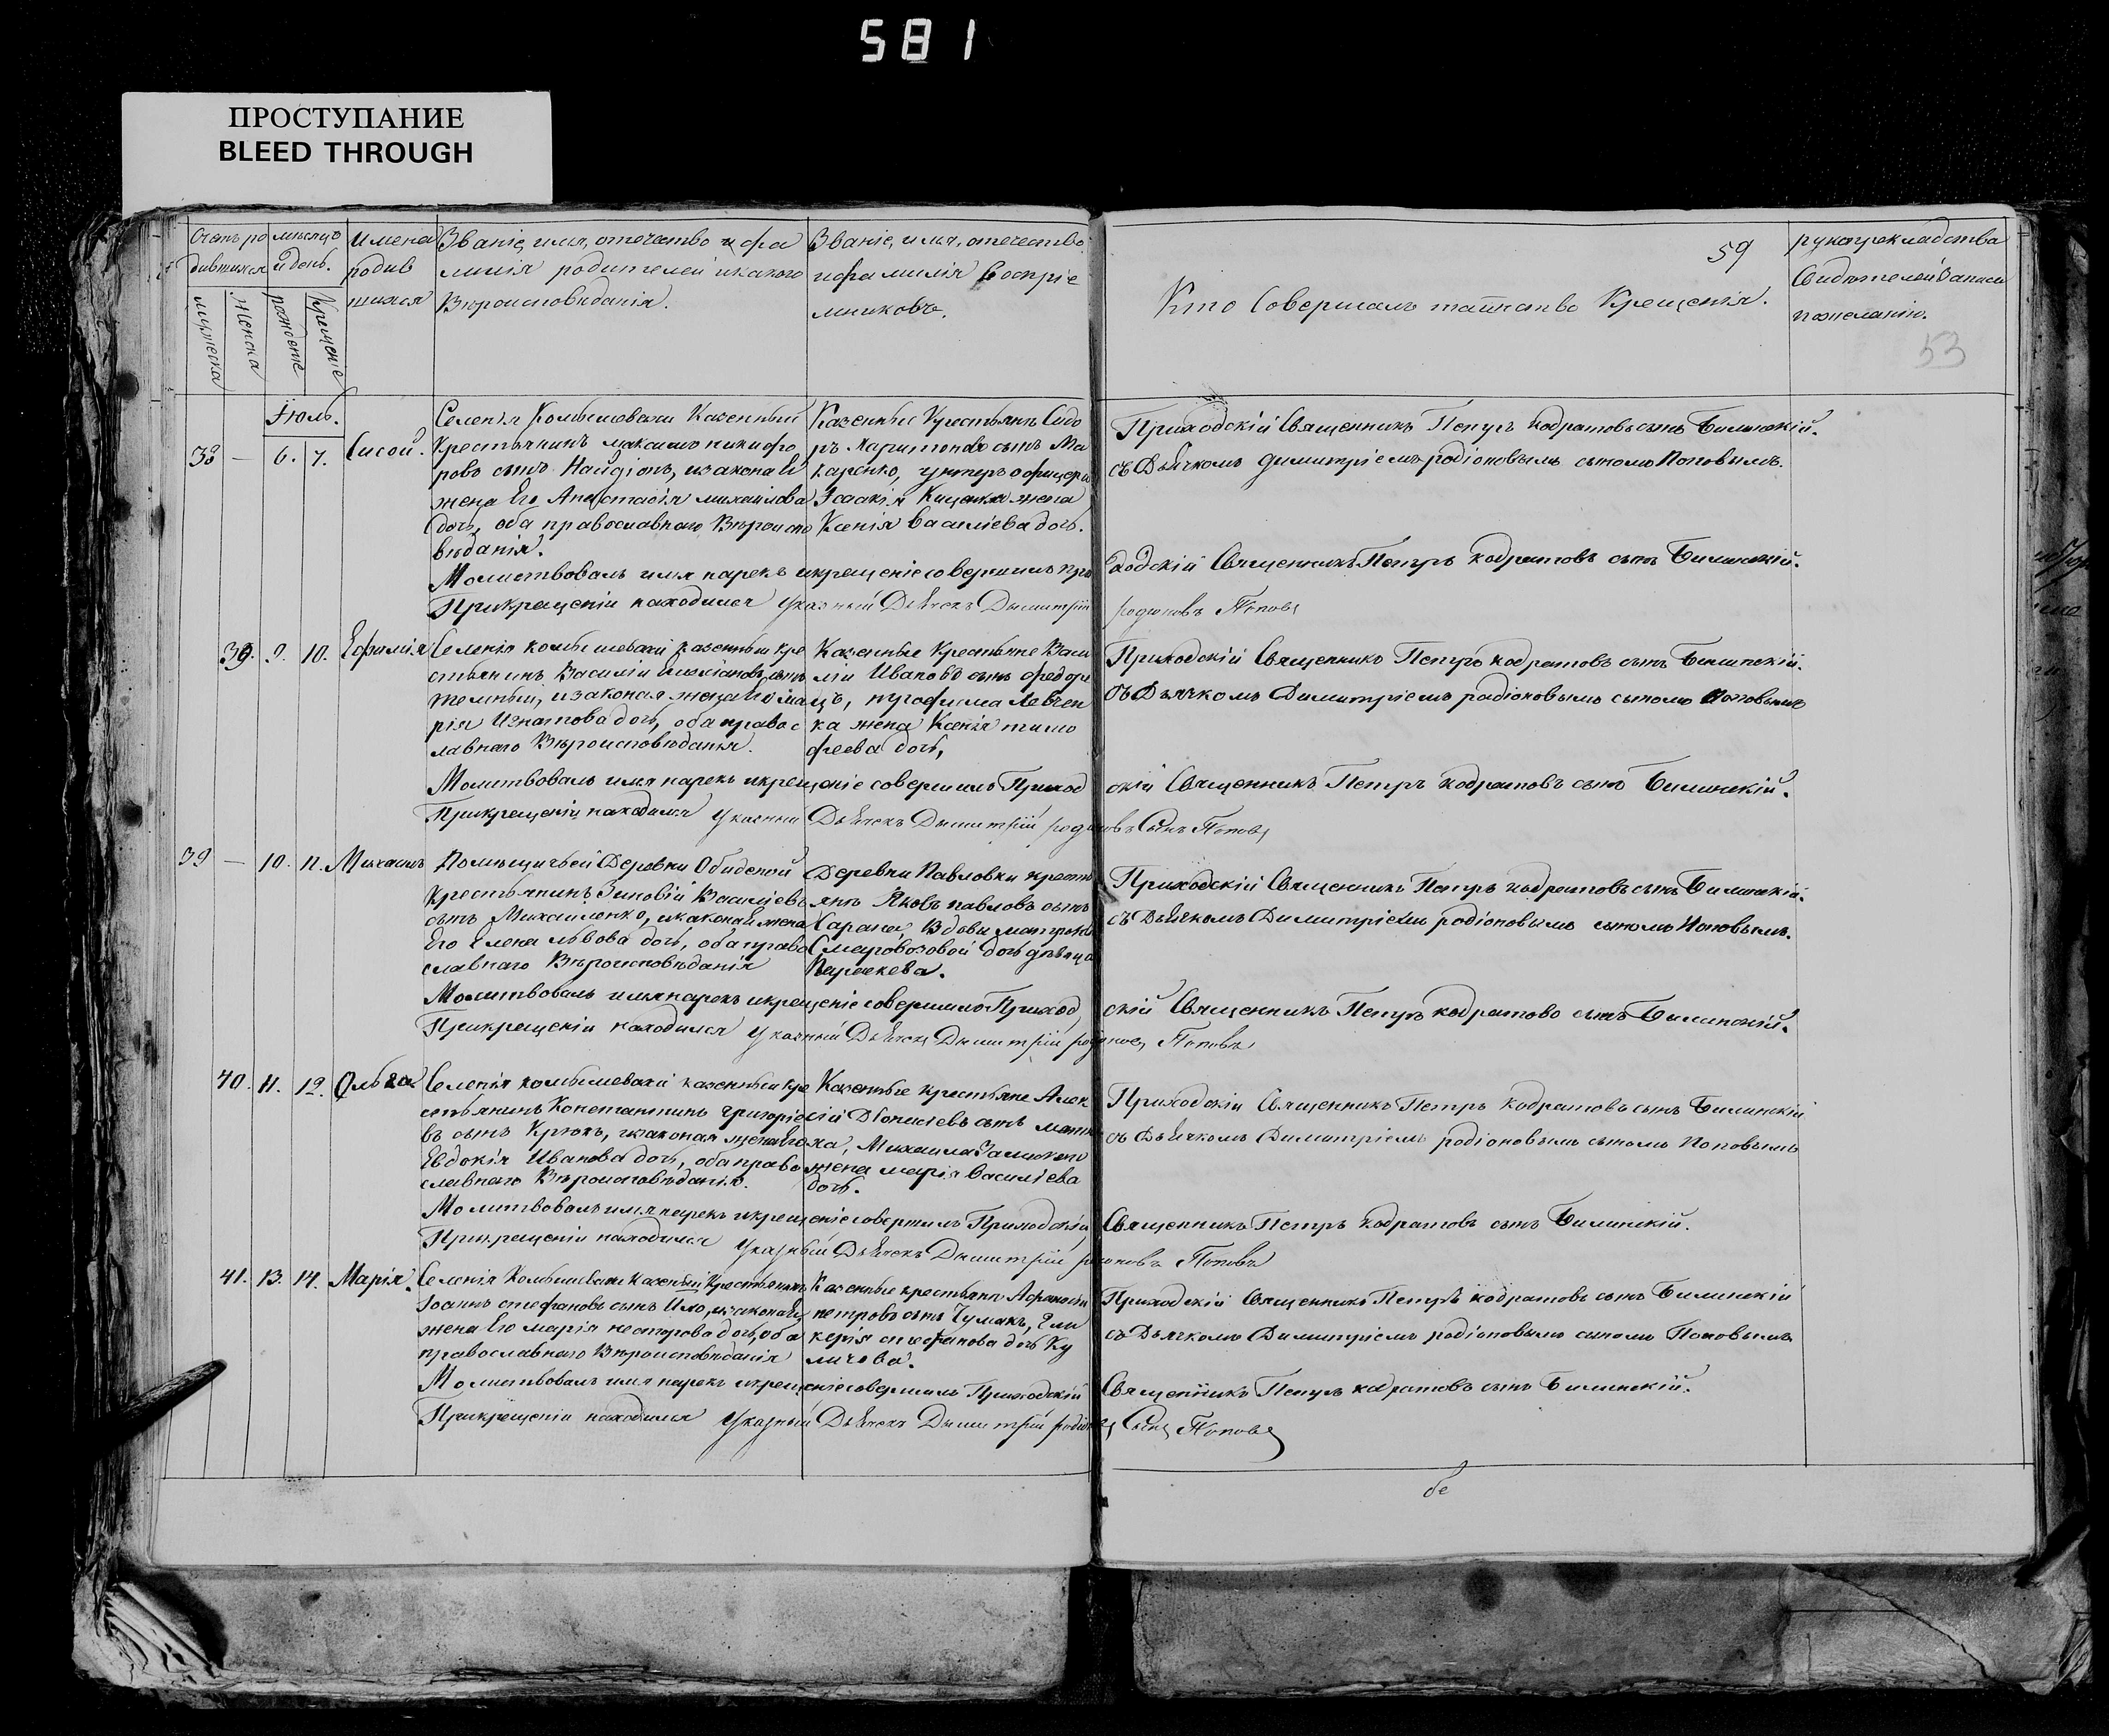 581
ПРОСТУПАНИЕ
BLEED THROUGH
Счетъ ро
дившихся
мужеска
женска
мѣсяцъ
и день.
рожденіе
Крещеніе
Имена
родив
шихся
Званіе, имя, отечество и фа
милія родителей и какого
Вѣроисповѣданія.
Званіе, имя, отечество
и фамилія Воспріе
мниковъ.
59
Кто Совершалъ таинство Крещенія.
рукоприкладства
Свидѣтелей Записи
по желанію.
53
Іюль.
38 — 6. 7. Сисой.
Селенія Комышевахи Казенный
Крестьянинъ Максимъ никифо
ровъ сынъ Найдіонъ, изаконая
жена Его Анастасія михаилова
дочь, оба православнаго Вѣроиспо
вѣданія.
Казенные Крестьянъ Сидо
ръ Харитоновъ сынъ Ма
каренко, унтеръ офицера
Ісаакія Кищенка жена
Ксенія Василіева дочь.
Приходскій Священникъ Петръ кодратовъ сынъ Билинскій.
съ Дьячкомъ димитріемъ родіоновымъ сыномъ Поповымъ.
Молитвовалъ имя нарекъ и крещеніе совершилъ при
ходскій Священникъ Петръ кодратовъ сынъ Билинскій.
При крещеніи находился указный Дьячекъ Дымитрій
родионовъ Поповъ
39. 9. 10. Ефимія
Селенія комышевахи казенный кре
стьянинъ Василій сынъ
темный, изаконая жена Его ма
рія Игнатова дочь, оба правос
лавнаго Вѣроисповѣданія.
Казенные Крестьяне Васи
лій Ивановъ сынъ федоре
цъ, трофима Левчен
ка жена Ксенія тимо
феева дочь,
Приходскій Священникъ Петръ кодратовъ сынъ Билинскій.
съ Дьячкомъ Димитріемъ радіоновымъ сыномъ Поповымъ
Молитвовалъ имя нарекъ и крещеніе совершилъ Приход
скій Священникъ Петръ кодратовъ сынъ Билинскій.
При крещеніи находился указный Дьячекъ Дымитрій родионовъ Сынъ Поповъ
39 — 10. 11. Михаилъ
Помѣщичьей Деревни Обидской
Крестьянинъ Зиновій Василіевъ
сынъ Михаиленко, изаконая жена
Его Елена львова дочь, оба право
славнаго Вѣроисповѣданія
Деревни Павловки кресть
янъ Яковъ павловъ сынъ
Сарана, Вдовы матроны
Смаровозовой дочь дѣвица
Параскева.
Приходскій Священникъ Петръ кодратовъ сынъ Билинскій.
съ Дьячкомъ Димитріемъ родіоновымъ сыномъ Поповымъ.
Молитвовалъ имя нарекъ и крещеніе совершилъ Приход
скій Священникъ Петръ кодратовъ сынъ Билинскій.
При крещеніи находился указный Дьячекъ Дымитрій родионовъ Поповъ
40. 11. 12. Ольга
Селенія комышевахи казенный кре
стьянинъ Константинъ григоріе
въ сынъ Крюкъ, изаконая жена Его
Евдокія Иванова дочь, оба право
славнаго Вѣроисповѣданія.
Казенные крестьяне Алек
сій Діонисіевъ сынъ
ха, Михаила
жена марія Василіева
дочь.
Приходскій Священникъ Петръ кодратовъ сынъ Билинскій
съ Дьячкомъ Димитріемъ родіоновымъ сыномъ Поповымъ
Молитвовалъ имя нарекъ и крещеніе совершилъ Приходскій
Священникъ Петръ кодратовъ сынъ Билинскій.
При крещеніи находился указный Дьячекъ Дымитрій родионовъ Поповъ
41. 13. 14. Марія.
Селенія Комышевахи Казеный Крестьянинъ
Іоаннъ стефановъ сынъ изаконая
жена Его марія несторова дочь, оба
православнаго Вѣроисповѣданія
Казенные крестьяне Афанасій
петровъ сынъ Чумакъ, Гли
керія стефанова дочь Ку
личова.
Приходскій Священникъ Петръ кодратовъ сынъ Билинскій
съ Дьячкомъ Димитріемъ родіоновымъ сыномъ Поповымъ
Молитвовалъ имя нарекъ и крещеніе совершилъ Приходскій
Священникъ Петръ кодратовъ сынъ Билинскій.
При крещеніи находился указный Дьячекъ Дымитрій родіоновъ Сынъ Поповъ
бе